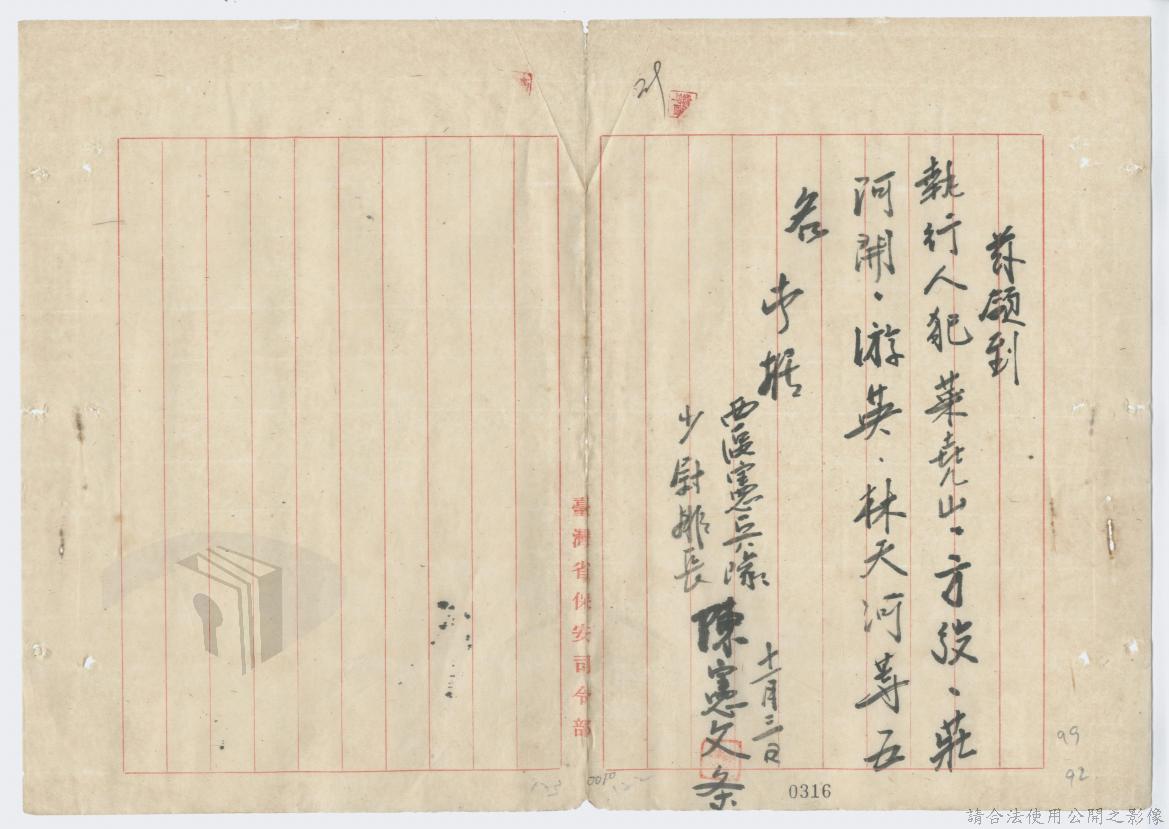 茲領到
執行人犯葉堯山、方弢、莊
河開、游英、林天河等五
名
此據
西區憲兵隊
少尉排長 陳憲文 条
十一月三日
臺灣省保安司令部
0316
99
92
請合法使用公開之影像